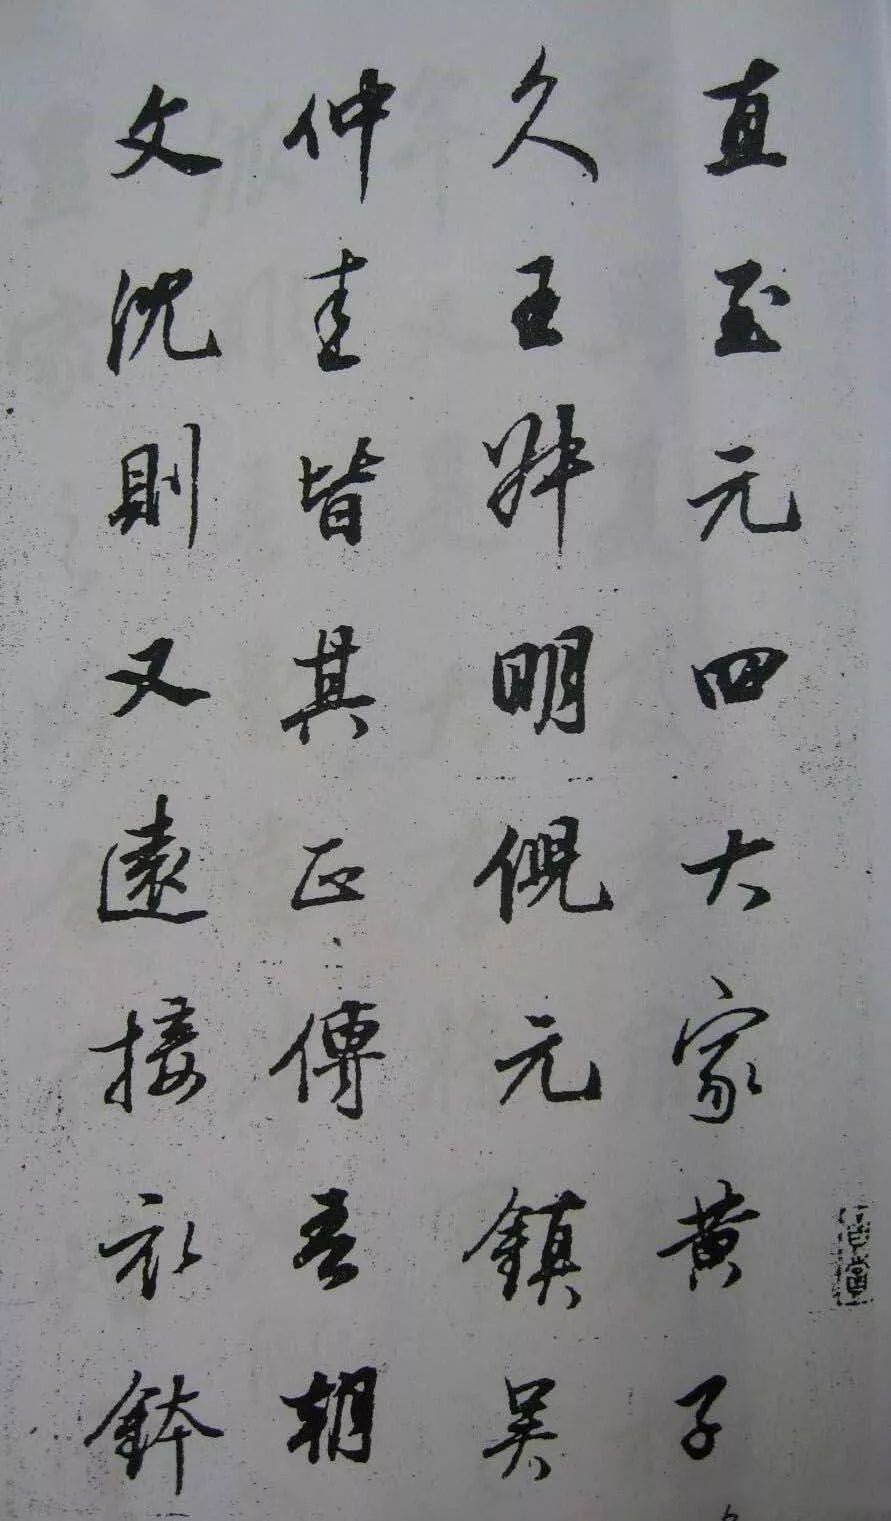 直至元四大家黃子
久王叔明倪元鎮吳
仲圭皆其正傳吾朝
文沈則又遠接衣鉢